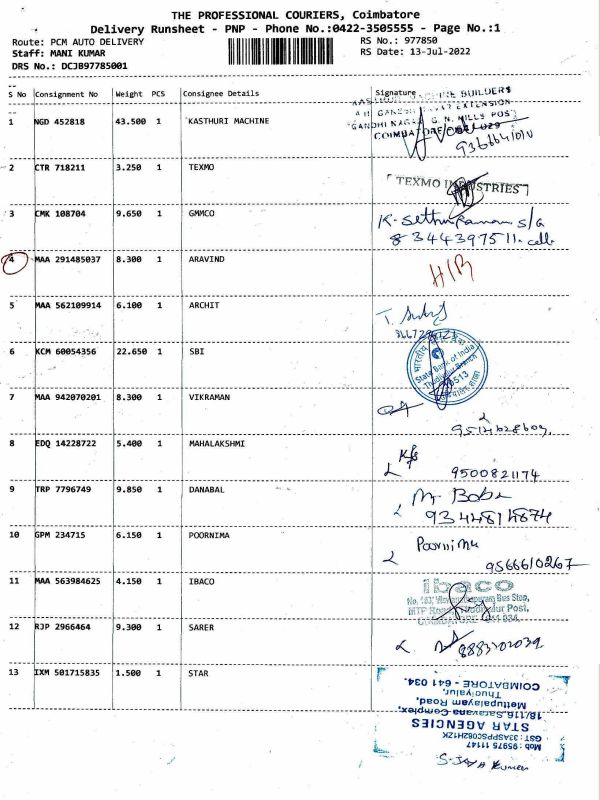 THE PROFESSIONAL COURIERS, Coimbatore
Delivery Runsheet - PNP - Phone No.:0422-3505555 - Page No.:1
Route: PCM AUTO DELIVERY RS No.: 977850
Staff: MANI KUMAR RS Date: 13-Jul-2022
DRS No.: DCJB97785001
S No Consignment No Weight PCS Consignee Details Signature
1 NGD 452818 43.500 1 KASTHURI MACHINE
MACHINE BUILDERS
EXTENSION
G. N. MILLS POST
COIMBATORE
2 CTR 718211 3.250 1 TEXMO
TEXMO INDUSTRIES
3 CMK 108704 9.650 1 GMMCO
8344397511
4 MAA 291485037 8.300 1 ARAVIND
H/R
5 MAA 562109914 6.100 1 ARCHIT
6 KCM 60054356 22.650 1 SBI
State Bank of India
Thudiyalur Branch
7 MAA 942070201 8.300 1 VIKRAMAN
8 EDQ 14228722 5.400 1 MAHALAKSHMI
9500821174
9 TRP 7796749 9.850 1 DANABAL
10 GPM 234715 6.150 1 POORNIMA
Poornima
9566610267
11 MAA 563984625 4.150 1 IBACO
ibaco
Bus Stop,
MTP Road, Thudiyalur Post,
COIMBATORE - 641 034.
12 RJP 2966464 9.300 1 SARER
13 IXM 501715835 1.500 1 STAR
Mob : 95975 11147
GST : 33ASPPS0082H1ZK
STAR AGENCIES
18/116, Saravana Complex,
Mettupalayam Road,
Thudiyalur,
COIMBATORE - 641 034.